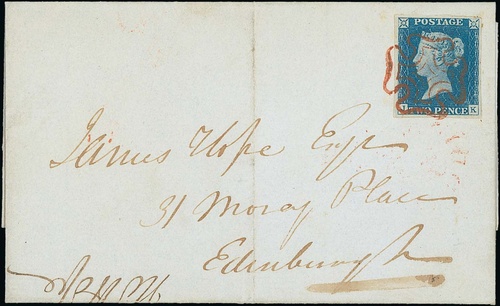 POSTAGE
TWO PENCE K
James Hope Esqr
31 Moray Place
Edinburgh